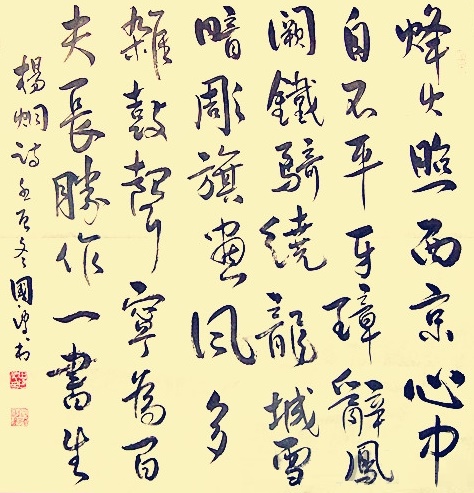 烽火照西京心中
自不平牙璋辭鳳
闕鐵騎繞龍城雪
暗彫旗畫風多
雜鼓聲寧為百
夫長勝作一書生
楊炯詩